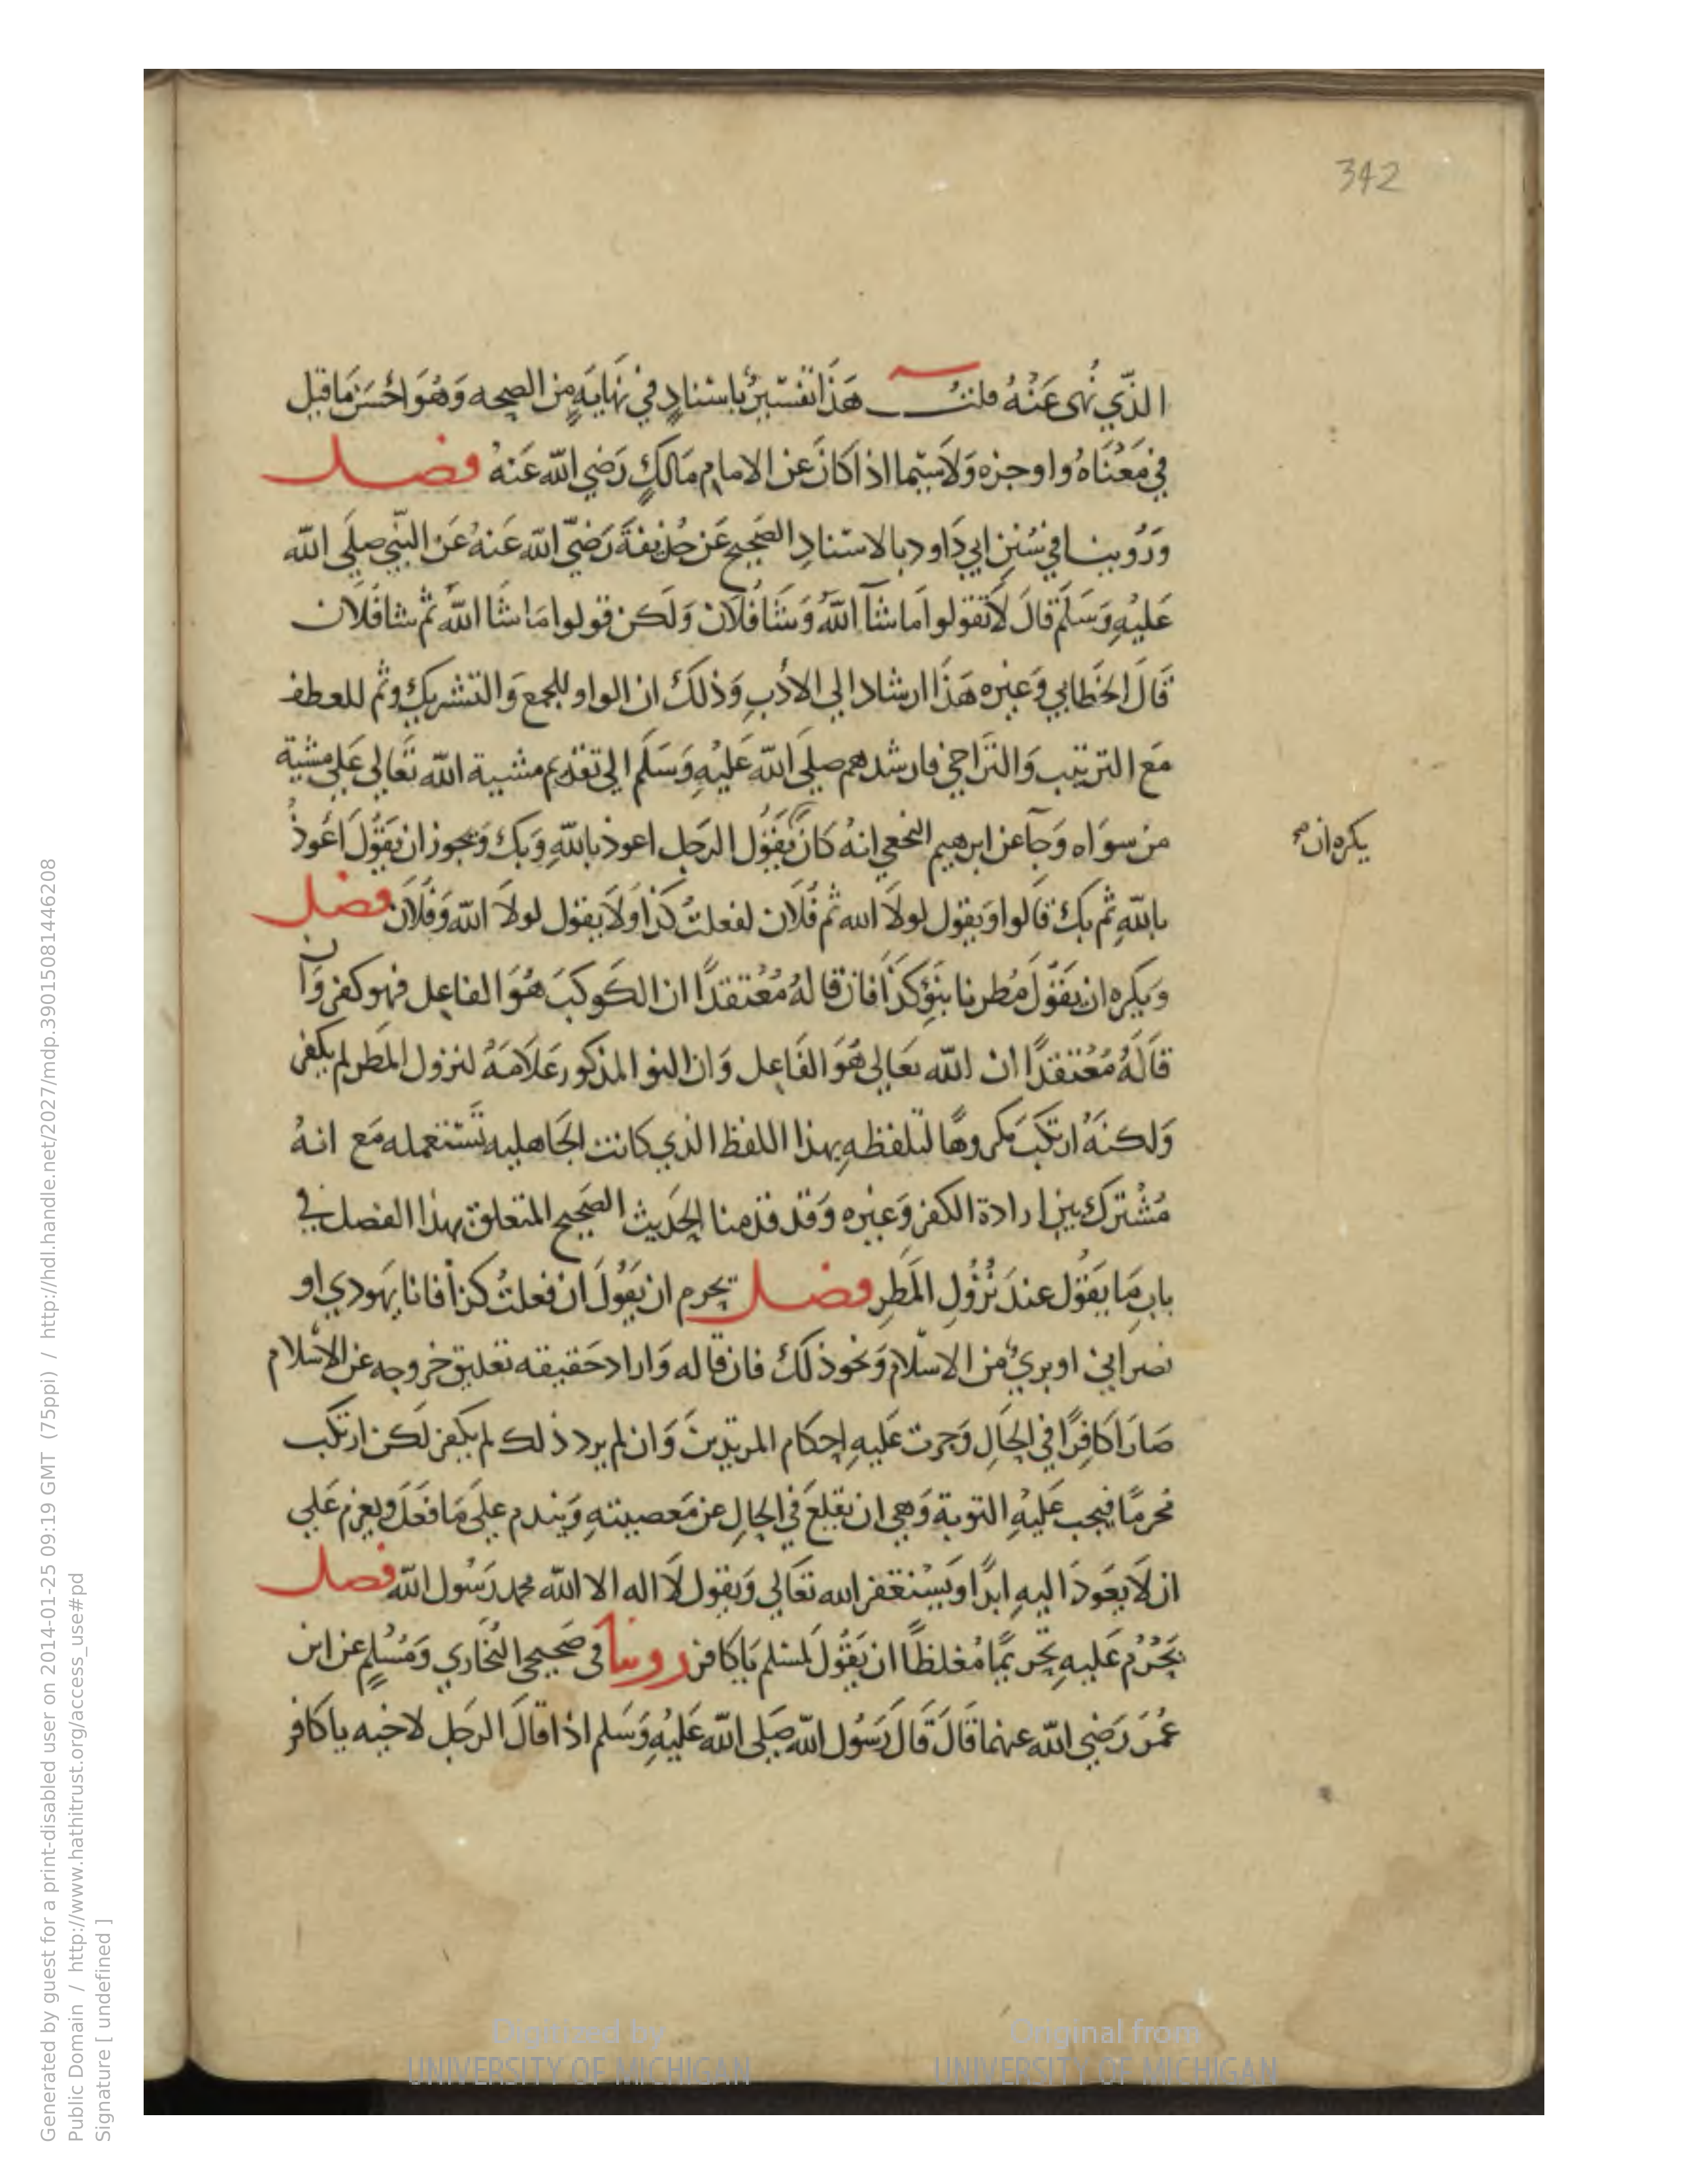 342
الذّي نُهى عَنْهُ قلتُ هَذَا تفسّيرٌ باسْنادٍ في نهَايَةٍ من الصحه وَهُوَ احْسَنُ مَا قيل
في مَعْنَاهُ واوجزه وَلاسَيّما اذا كانَ عن الامام مَالكٍ رَضي الله عَنهُ فصل
وَرُوينا في سُنن ابي دَاود بالاسْنادِ الصَحيح عَن حُذيفةَ رَضيّ الله عَنهُ عَن النّبي صلي الله
عَليهِ وَسَلّم قالَ لاَ تقولوا مَا شآ اللهُ وَشَا فُلان وَلَكن قولوا مَا شَا اللهُ ثم شا فلَان
قَالَ الخَطابي وَغيره هَذَا ارشاد الي الادَبِ وَذلكَ ان الواو للجمع وَالتشريك وثم للعطف
مَع الترتيب وَالتَراخي فارشدهم صلي الله عَليْهِ وَسَلم الي تقديم مشيية الله تعَالي عَلي مشية
من سوَاه وَجآ عن ابرهيم النخعي انهُ كانَ يَقوُل الرَجل اعوذ باللهِ وَبك وَيجوز ان يَقوُل اعَوذُ
يكره ان صح
باللهِ ثم بك قالوا وَيقول لولاَ الله ثم فُلَان لفعلتُ كذا وَلاَ يقول لولاَ الله وَفلَان فصل
وَيكره ان يقوُل مُطرنا بنَوْ كذَا فان قالهُ مُعْتقدًا ان الكَوكبَ هُوَ الفاعل فهو كفر وَان
قالَهُ مُعْتقدًا ان الله تعَالي هُوَ الفَاعل وَان النو المذكور عَلاَمَةُ لنزول المطر لم يكفر
وَلكنهُ ارتكَبَ مكروهًا لتلفظهِ بهذا اللفظ الذي كانت الجَاهليه تَسْتعمله مَع انهُ
مُشْتركٌ بين ارادة الكفر وَغيره وَقد قدمنا الحَديث الصَحيح المتعلق بهذا الفصل في
بابِ مَا يقوُل عندَ نزُولِ المَطرِ فصل يحرم ان يَقوُلَ ان فعلتُ كذا فانا يهَودي او
نصَراني او بريٌ من الاسْلام وَنحو ذلكَ فان قاله وَاراد حَقيقه تعليق خروجه عن الاسْلام
صَارَ كافرًا في الحَالِ وَجرت عَليهِ احكام المرتدينَ وَان لم يرد ذلك لم يكفر لكن ارتكب
محرمًا فيجب عَليْهِ التوبة وَهي ان يقلعَ في الحالِ عن مَعصيتهِ وَيندم عليَ مَا فعَلَ ويعزم عَلي
ان لاَ يعَودَ اليهِ ابدًا وَيسْتغفر الله تعَالي وَيقول لاَ اله الا الله محمد رَسُول الله فصل
يَحْرُم عَليهِ تحريمًا مُغلظًا ان يَقوُلَ لمسْلم يَا كافر روينا في صَحيحي البُخاري وَمُسْلمٍ عن ابن
عُمَرَ رَضي الله عنهما قالَ قالَ رَسُول الله صَلي الله عَليْهِ وَسَلم اذا قالَ الرَجل لاخيه يا كافر
Generated by guest for a print-disabled user on 2014-01-25 09:19 GMT (75ppi) / http://hdl.handle.net/2027/mdp.39015081446208
Public Domain / http://www.hathitrust.org/access_use#pd
Signature [ undefined ]
Digitized by
UNIVERSITY OF MICHIGAN
Original from
UNIVERSITY OF MICHIGAN